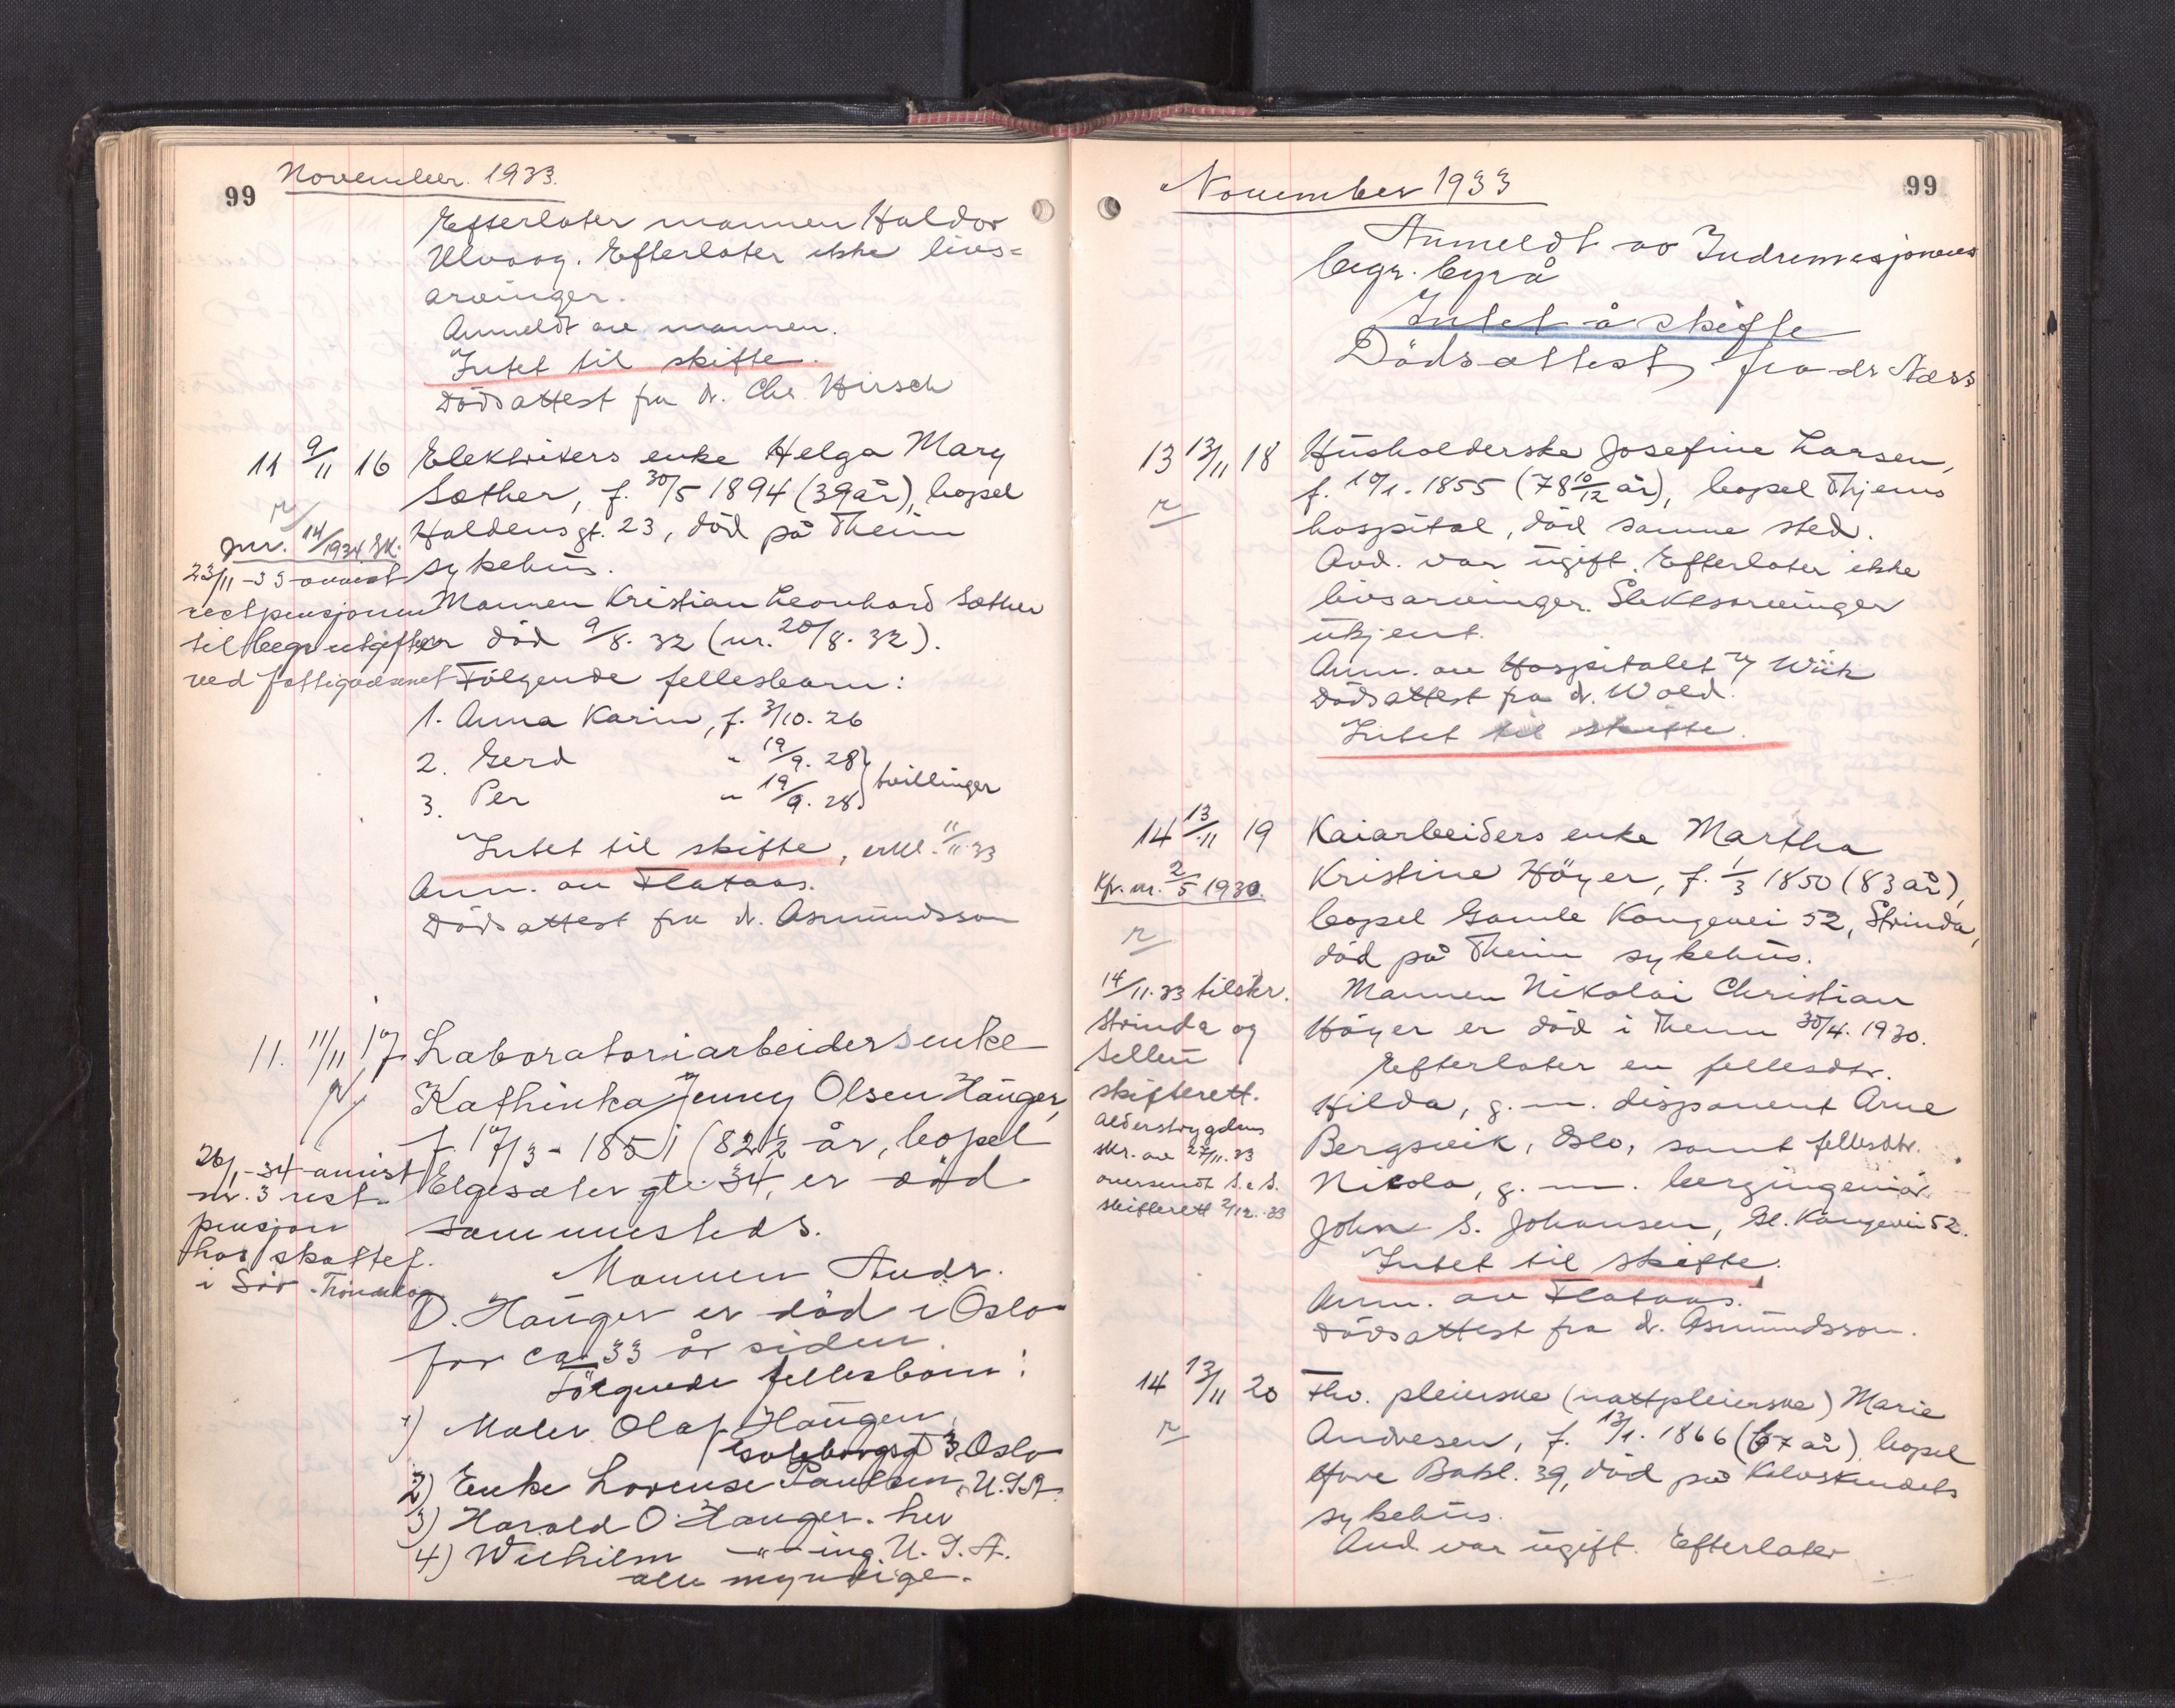 99
November. 1933.
Efterlater mannen Haldor
Ulvaag. Efterlater ikke livs=
arvinger.
Anmeldt av mannen.
Intet til skifte.
Dödsattest fra dr. Chr. Hirsch
11 9/11 16 Elektrikers enke Helga Mary
Sæther, f. 30/5 1894 (39 år), bopel
Haldens gt. 23, död på Thein
sykehus.
jnr. 14/1934 SK.
23/11-33 anvist
restpensjonen
til begr utgifter
ved fattigvesenet
Mannen Kristian Leonhard Sæther
er död 9/8. 32 (nr. 20/8. 32).
Fölgende fellesbarn:
1. Anna Karin, f. 3/10. 26
2. Gerd " 19/9. 28
3. Per " 19/9. 28 } tvillinger
Intet til skifte, erkl. 11/11.33
Ann. av Flataas.
Dödsattest fra dr. Asmundsson
11. 11/11 17. Laboratoriarbeiders enke
Kathinka Jenny Olsen Hauger,
f 17/3 - 1851 (82 1/2 år, bopel
Elgesæter gt. 34, er död
sammesteds.
26/1-34 anvist
nr. 3 rest-
pensjon
hos skattef.
i Sör-Tröndelag
Mannen Andr.
O. Hauger er död i Oslo
for ca. 33 år siden
Fölgende fellesbarn:
1) Maler Olaf Haugen,
Göteborggt 3 Oslo
2) Enke Lovense Paulsen, U.S.A.
3) Harald O. Hauger. her
4) Wilhelm -"- ing. U.S.A.
alle myndige.
99
November 1933
Anmeldt av Indremisjonens
begr. byrå
Intet å skifte
Dödsattest fra dr Næss
13 13/11 18 Husholderske Josefine Larsen,
f. 10/1. 1855 (78 10/12 år), bopel Thjems
hospital, död samme sted.
Avd. var ugift. Efterlater ikke
livsarvinger. Slektsarvinger
ukjent.
Anm. av Hospitalet v/ Wiik
Dödsattest fra dr. Wold.
Intet til skifte.
14 13/11 19 Kaiarbeiders enke Martha
Kristine Höyer, f. 1/3 1850 (83 år),
bopel Gamle Kongevei 52, Strinda,
död på Thein sykehus.
Kfr. nr. 2/5 1930
14/11.33 tilskr.
Strinda og
Selbu
skifterett.
Alderstrygdens
skr. av 27/11.33
oversendt S. & S.
skifterett 2/12.33
Mannen Nikolai Christian
Höyer er död i Theim 30/4. 1930.
Efterlater en fellesdtr.
Hilda, g. m. disponent Arne
Bergsvik, Oslo, samt fellesdtr.
Nicola, g. m. bergingeniör
John S. Johansen, Gl. Kongevei 52.
Intet til skifte.
Anm. av Flataas.
Dödsattest fra dr. Asmundsson.
14 13/11 20 Fhv. pleierske (nattpleierske) Marie
Andresen, f. 13/1. 1866 (67 år) bopel
Övre Bakl. 39, död på Kalvskindets
sykehus.
Avd. var ugift. Efterlater